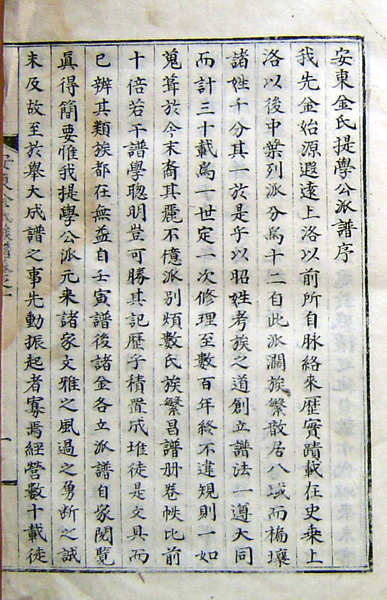 安東金氏提學公派譜序
我先金始源遐遠上洛以前所自脉絡來歷實蹟載在史乘上
洛以後中葉列派分爲十二自此派濶族繁散居八域而槅壤
諸姓千分其一於是乎以昭姓考族之道創立譜法一遵大同
而計三十載爲一世定一次修理至數百年終不違規則一如
蒐葺於今末裔其麗不億派別頻數氏族繁昌譜册卷帙比前
十倍若不譜學聡明豈可勝其記歷乎積置成堆徒是文具而
已辨其類族都在無益自壬寅譜後諸金各立派譜自家閱覽
眞得簡要惟我提學公派元來諸家文雅之風過之勇断之誠
末及故至於舉大成譜之事先動振起者寡焉經營數十載徒
安東金氏族譜卷之一